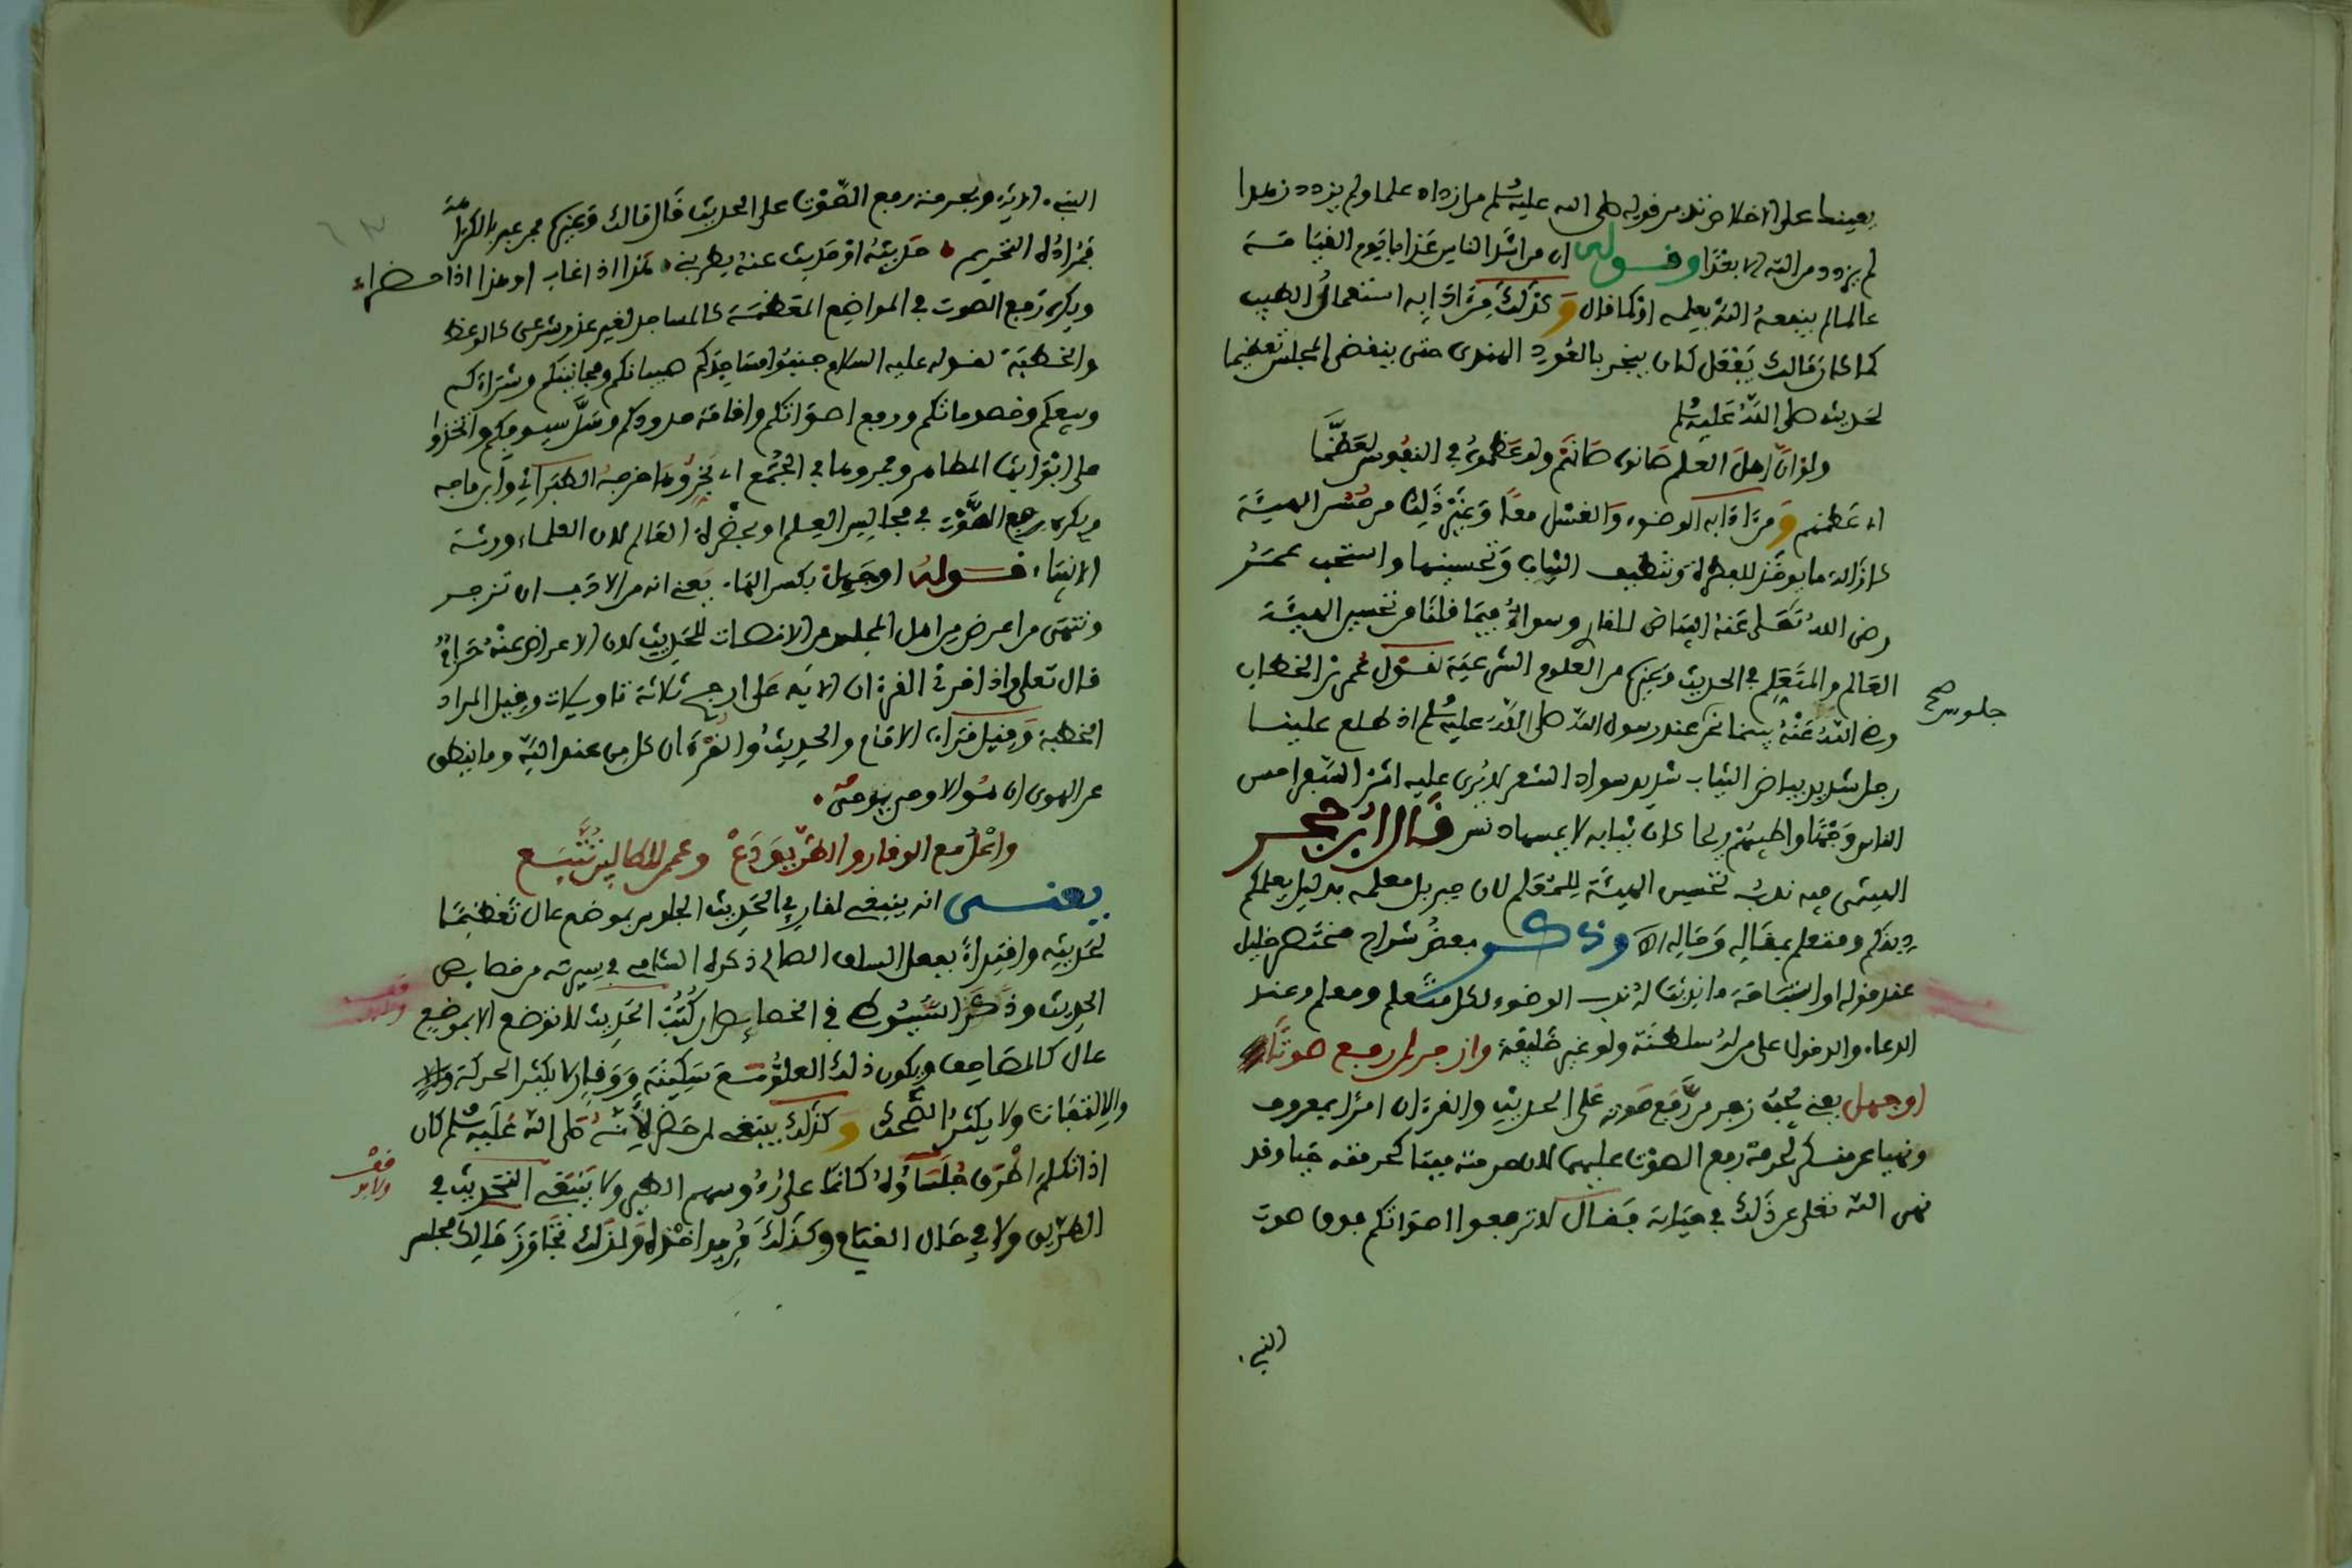 يعينك على الاخلاص تدبر قوله صلى الله عليه وسلم من ازداد علما ولم يزدد زهدا
لم يزدد من الله الا بعدا وقوله ان من اشد الناس عذابا يوم القيامة
عالما لم ينفعه الله بعلمه او كما قال وكذلك من ادابه استعمال الطيب
كما كان مالك يفعل كان يبخر بالعود الهندي حتى ينقضي المجلس تعظيما
لحديثه صلى الله عليه وسلم
ولو ان اهل العلم صانوه صانهم ولو عظموه في النفوس لعظما
اي عظمهم ومن ادابه الوضوء والغسل معا وغير ذلك من حسن الهيئة
كازالة ما يوفر للفطرة وتنظيف الثياب وتحسينها واستحب عمر
رضي الله تعلى عنه البياض للقاري وسواء فيما قلنا من تحسين الهيئة
العالم والمتعلم في الحديث وغيره من العلوم الشرعية لقول عمر بن الخطاب
رضي الله عنه بينما نحن عند رسول الله صلى الله عليه وسلم اذ طلع علينا
جلوس صح
رجل شديد بياض الثياب شديد سواد الشعر لا يرى عليه اثر السفر احسن
الناس وجها واطيبهم ريحا كان ثيابه لا يمسها دنس قال ابن حجر
الهيتمي فيه ندب تحسين الهيئة للمتعلم لان جبريل معلم بدليل يعلمكم
دينكم ومتعلم بمقاله وحاله اه وذكر بعض شراح مختصر خليل
عند قوله او استباحة ما ندبت له ندب الوضوء لكل متعلم ومعلم وعند
الدعاء والدخول على من له سلطنة ولو غير خليفة وازجر لمن رفع صوتا
او جهل يعني يجب زجر من رفع صوته على الحديث والقرءان امرا بمعروف
ونهيا عن منكر لحرمة رفع الصوت عليهما لان حرمته ميتا كحرمته حيا وقد
نهى الله تعلى عن ذلك في حياته فقال لا ترفعوا اصواتكم فوق صوت
النبي.
النبي الاية ويحرم منه رفع الصوت على الحديث قال مالك وغيره فمن عبر بالكراهة
فمراده التحريم حديثه او حديث عنه يطربني هذا اذا غاب او هذا اذا حضرا
ويكره رفع الصوت في المواضع المعظمة كالمساجد لغير عذر شرعي كالوعظ
والخطبة لقوله عليه السلام جنبوا مساجدكم صبيانكم ومجانينكم وشراءكم
وبيعكم وخصوماتكم ورفع اصواتكم واقامة حدودكم وسل سيوفكم واتخذوا
على ابوابها المطاهر وجمروها في الجمع اي بخروها اخرجه الطبراني وابن ماجه
ويكره رفع الصوت في مجالس العلم او بحضرة العالم لان العلماء ورثة
الانبياء قوله او جهل بكسر الهاء يعني انه من الادب ان تزجر
وتنهى من اعرض من اهل المجلس من الانصات للحديث لان الاعراض عنه حرام
قال تعلى واذا قرئ القرءان الاية على ارجح ثلاثة تاويلات وقيل المراد
الخطبة وقيل قراءة الامام والحديث والقرءان كل من عند الله وما ينطق
عن الهوى ان هو الا وحي يوحى
واعل مع الوقار والطريق دع وعمر للكالين تتبع
يعني انه ينبغي لقاري الحديث الجلوس بموضع عال تعظيما
لحديثه واقتداء بفعل السلف الصالح ذكره الشامي في سيرته من خصايص
الحديث وذكر السيوطي في الخصايص ان كتب الحديث لا توضع الا بموضع
عال كالمصاحف ويكون ذلك العلو مع سكينة ووقار لا يكثر الحركة
والالتفات ولا يكثر التحدث وكذلك ينبغي لمن حضر لانه صلى الله عليه وسلم كان
اذا تكلم اطرق جلساؤه كانما على رءوسهم الطير ولا ينبغي التحديث في
قف ولا بد
الطريق ولا في حال القيام وكذلك ولذلك تجاوز مالك مجلس